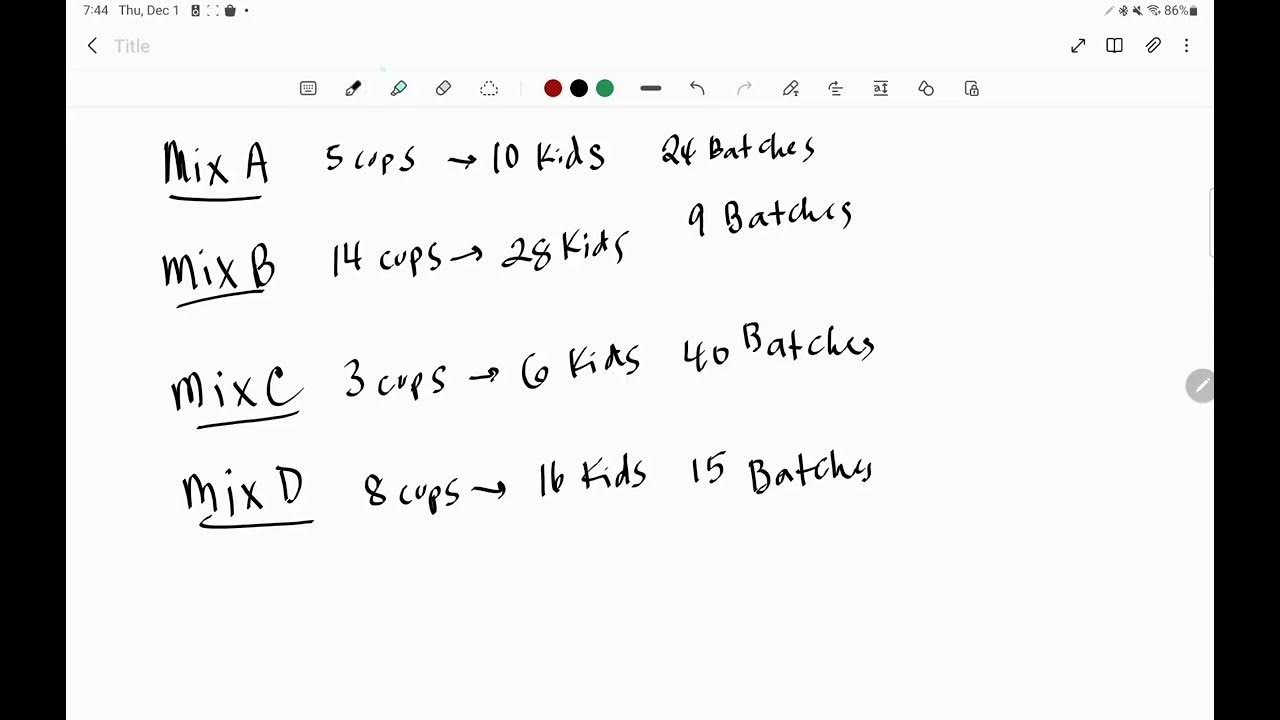 7:44 Thu, Dec 1
86%
Title
Mix A 5 cups → 10 Kids 24 Batches
9 Batches
Mix B 14 cups → 28 Kids
Mix C 3 cups → 6 Kids 40 Batches
Mix D 8 cups → 16 Kids 15 Batches